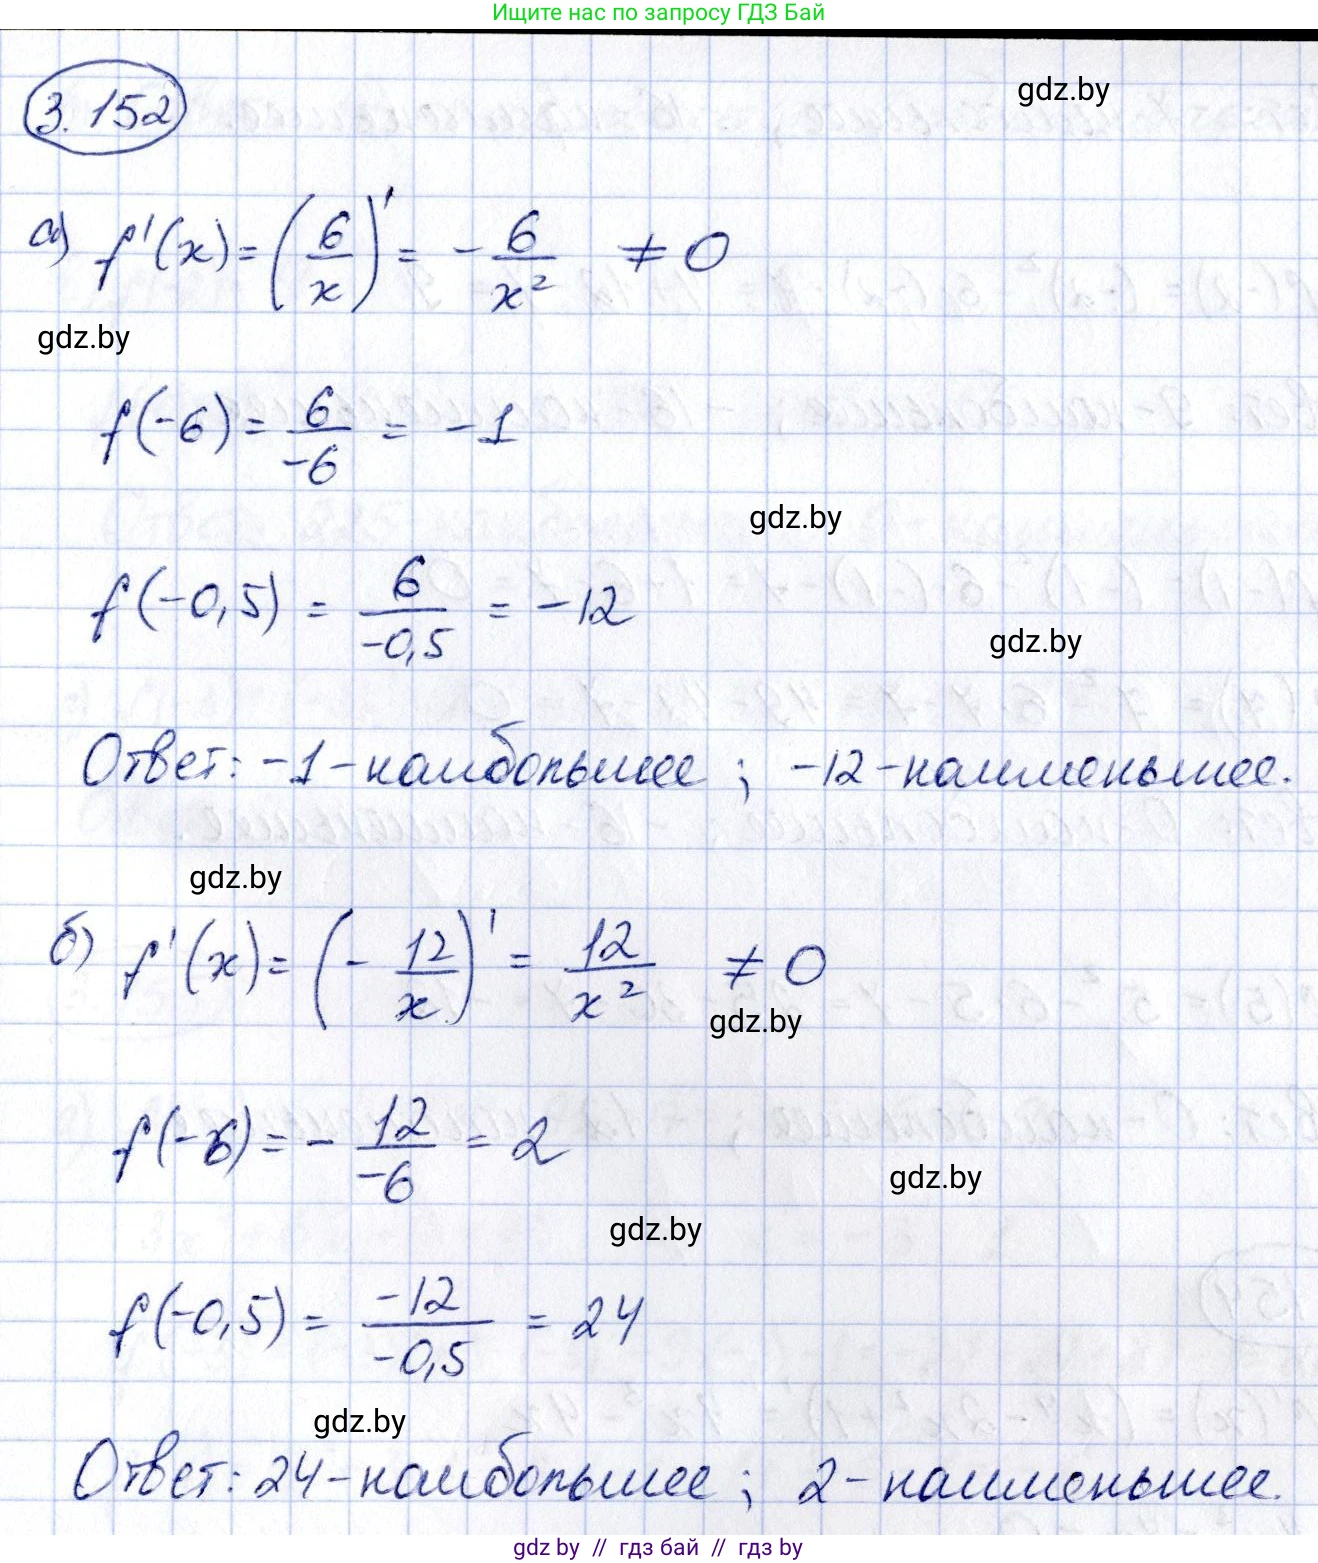 Ищите нас по запросу ГДЗ Бай
3.152
gdz.by
а) f'(x) = (6/x)' = - 6/x² ≠ 0
gdz.by
f(-6) = 6/-6 = -1
gdz.by
f(-0,5) = 6/-0,5 = -12
gdz.by
Ответ: -1 - наибольшее ; -12 - наименьшее.
gdz.by
б) f'(x) = (- 12/x)' = 12/x² ≠ 0
gdz.by
f(-6) = - 12/-6 = 2
gdz.by
gdz.by
f(-0,5) = -12/-0,5 = 24
gdz.by
Ответ: 24 - наибольшее ; 2 - наименьшее.
gdz by // гдз бай // гдз by